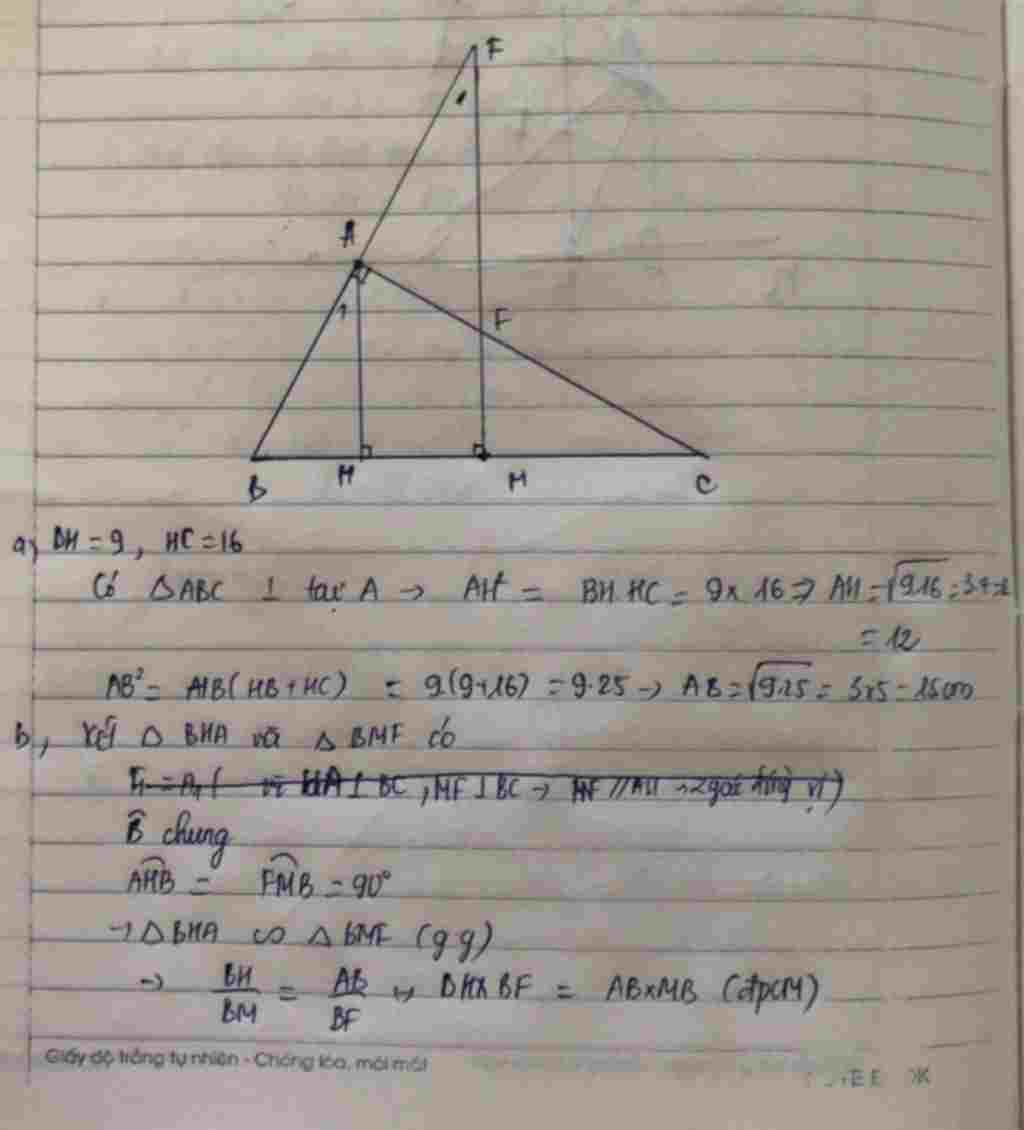 F
A
1
F
B H M C
a, BH = 9, HC = 16
Có △ABC ⊥ tại A → AH² = BH.HC = 9 x 16 => AH = √9.16 = 3.4
= 12
AB² = HB(HB+HC) = 9(9+16) = 9.25 → AB = √9.25 = 3x5 = 15cm
b, Xét △ BHA và △ BMF có
F₁ = A₁ ( vì HA ⊥ BC, MF ⊥ BC → MF // AH → 2 góc đồng vị )
B̂ chung
AHB = FMB = 90°
→ △BHA ∽ △BMF (g g)
→ BH/BM = AB/BF → BH x BF = AB x MB (đpcm)
Giấy độ trắng tự nhiên - Chống lóa, mỏi mắt